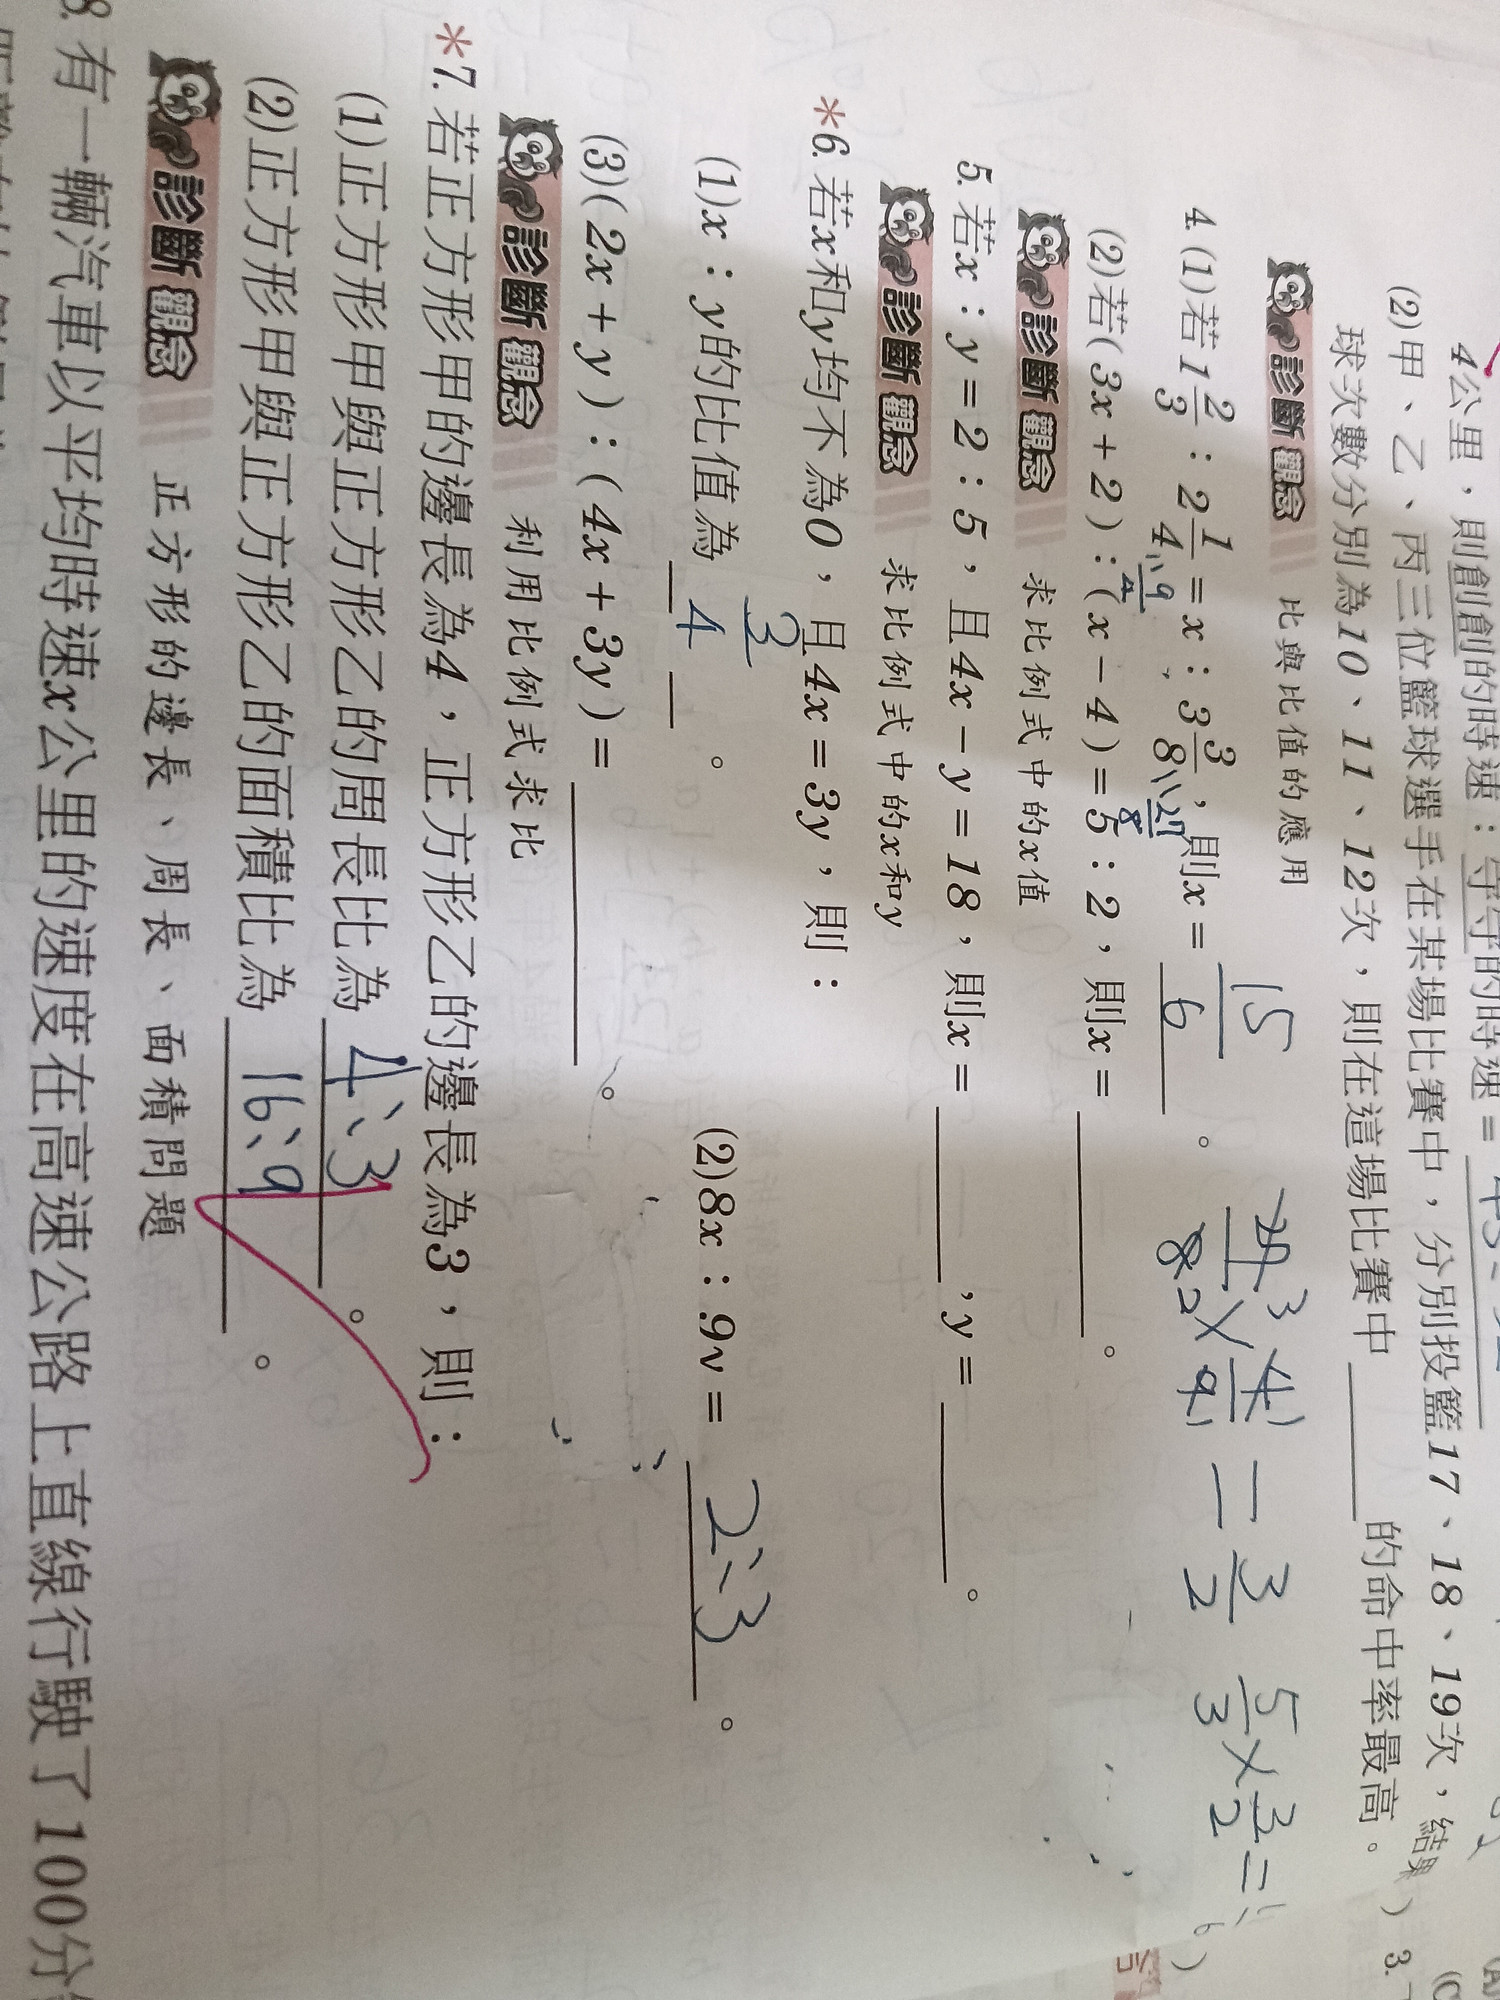 4公里,則創創的時速:守守的時速=
(2)甲、乙、丙三位籃球選手在某場比賽中,分別投籃17、18、19次,結果
球次數分別為10、11、12次,則在這場比賽中________的命中率最高。
診斷觀念 比與比值的應用
4.(1)若1 2/3:2 1/4=x:3 3/8,則x= 15/6 。
9/4 27/8
27/8 × 4/9 = 3/2 5/3 × 3/2 =
(2)若(3x+2):(x-4)=5:2,則x=________。
診斷觀念 求比例式中的x值
5.若x:y=2:5,且4x-y=18,則x=________,y=________。
診斷觀念 求比例式中的x和y
*6.若x和y均不為0,且4x=3y,則:
(1)x:y的比值為 3/4 。 (2)8x:9y= 2:3 。
(3)(2x+y):(4x+3y)=________。
診斷觀念 利用比例式求比
*7.若正方形甲的邊長為4,正方形乙的邊長為3,則:
(1)正方形甲與正方形乙的周長比為 4:3 。
(2)正方形甲與正方形乙的面積比為 16:9 。
診斷觀念 正方形的邊長、周長、面積問題
8.有一輛汽車以平均時速x公里的速度在高速公路上直線行駛了100分